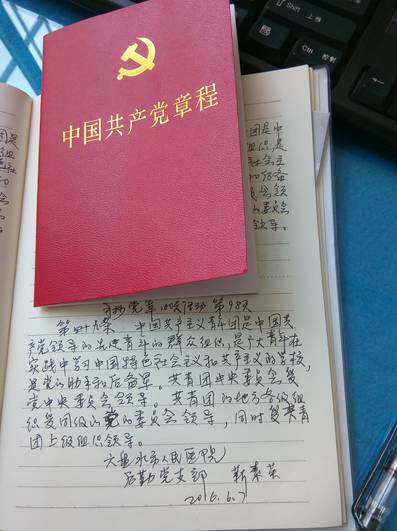 中国共产党章程
手抄党章100天活动 第98天
第四十九条 中国共产主义青年团是中国共
产党领导的先进青年的群众组织,是广大青年在
实践中学习中国特色社会主义和共产主义的学校,
是党的助手和后备军。共青团中央委员会受
党中央委员会领导。共青团的地方各级组
织受同级党的委员会领导,同时受共青
团上级组织领导。
六盘水市人民医院
后勤党支部 靳素芸
2016.6.7
Shift 上档
Ctrl 控制
团是中
组织,是